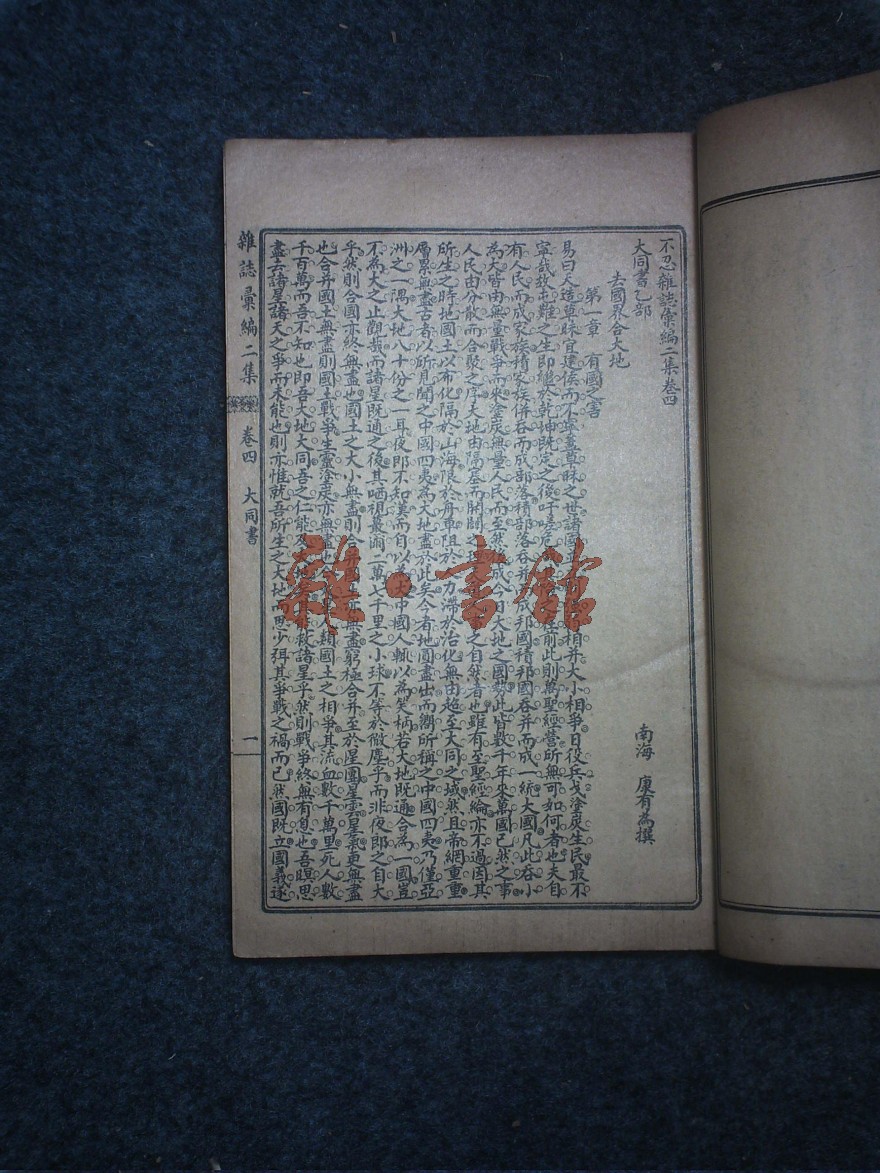 不忍雜誌彙編二集卷四
大同書乙部
南海 康有為撰
去國界合大地
第一章 有國之害
易曰天造草昧宜建侯而不寧蓋草昧之世諸國並立 相并大小相爭日役兵戈塗炭生民最不
寧哉故屯難之生即繼於乾坤既定之後吁嗟危 前此則萬聖經營所無可如何者也夫自
有人民而成家族積家族併吞而成部落積部落吞 成邦國積邦國吞并而成一統大國凡此吞小
為大皆由無量戰爭而來塗炭無量人民而至然 成今日大地之國勢此皆數千年來萬國已然之事
人民由分散而合聚之序大地由隔塞而開闢之理 之自然者也雖有至聖經綸亦不過因其
所生之時地國土以布化隔於山海限於舟車阻於 力滯於治化無由超至大同之域然且帝網重重
層累無盡古者以所見聞之中國四夷為大地盡於此矣今者地圓盡出而嚮所稱之中國四夷乃僅亞
洲之一隅大地八十份之一耳夜郎不知漢而自以為大中國人輒以為笑柄若大地既通合為一國豈
不為大之止觀哉而諸星既通之後其哂視最爾一萬七千里之小球不等於微塵乎而非夜郎之自大
乎然則合國亦終無盡也國土之大小無盡則合 無盡窮極合并至於星團星雲星氣更無盡
也合并國土無盡則國土戰爭生靈塗炭亦無盡也 人類國土之相爭其流血數千萬里死人數
千百萬而吾不知也即吾大地大同吾之仁能及大地 救諸星乎然則戰爭終無有息也吾瞑思
盡去諸星諸天之爭而未能也則亦惟就吾所生之大地而思少弭其爭戰之禍而已然國既立國義遂
雜誌彙編二集 卷四 大同書 一
雜·書館